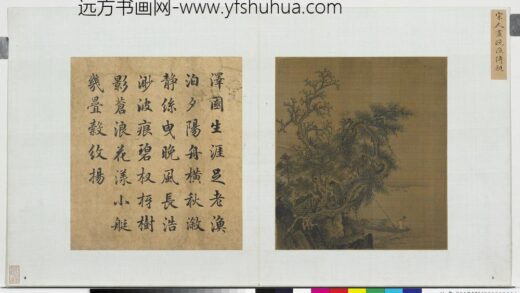 远方书画网-www.yfshuhua.com
宋人畫
澤國生涯足老漁
泊夕陽舟橫秋漵
靜絲曳晚風長浩
渺波痕碧杈枒樹
影蒼浪花漾小艇
幾疊縠紋揚